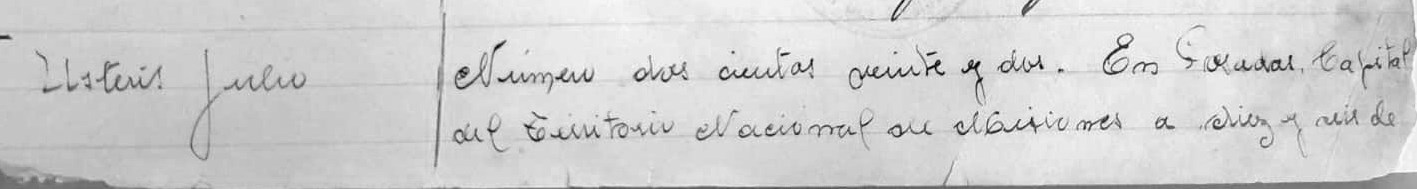 Usteris Julio
Número dos cientos veinte y dos. En Posadas, Capital
del Territorio Nacional de Misiones a diez y seis de